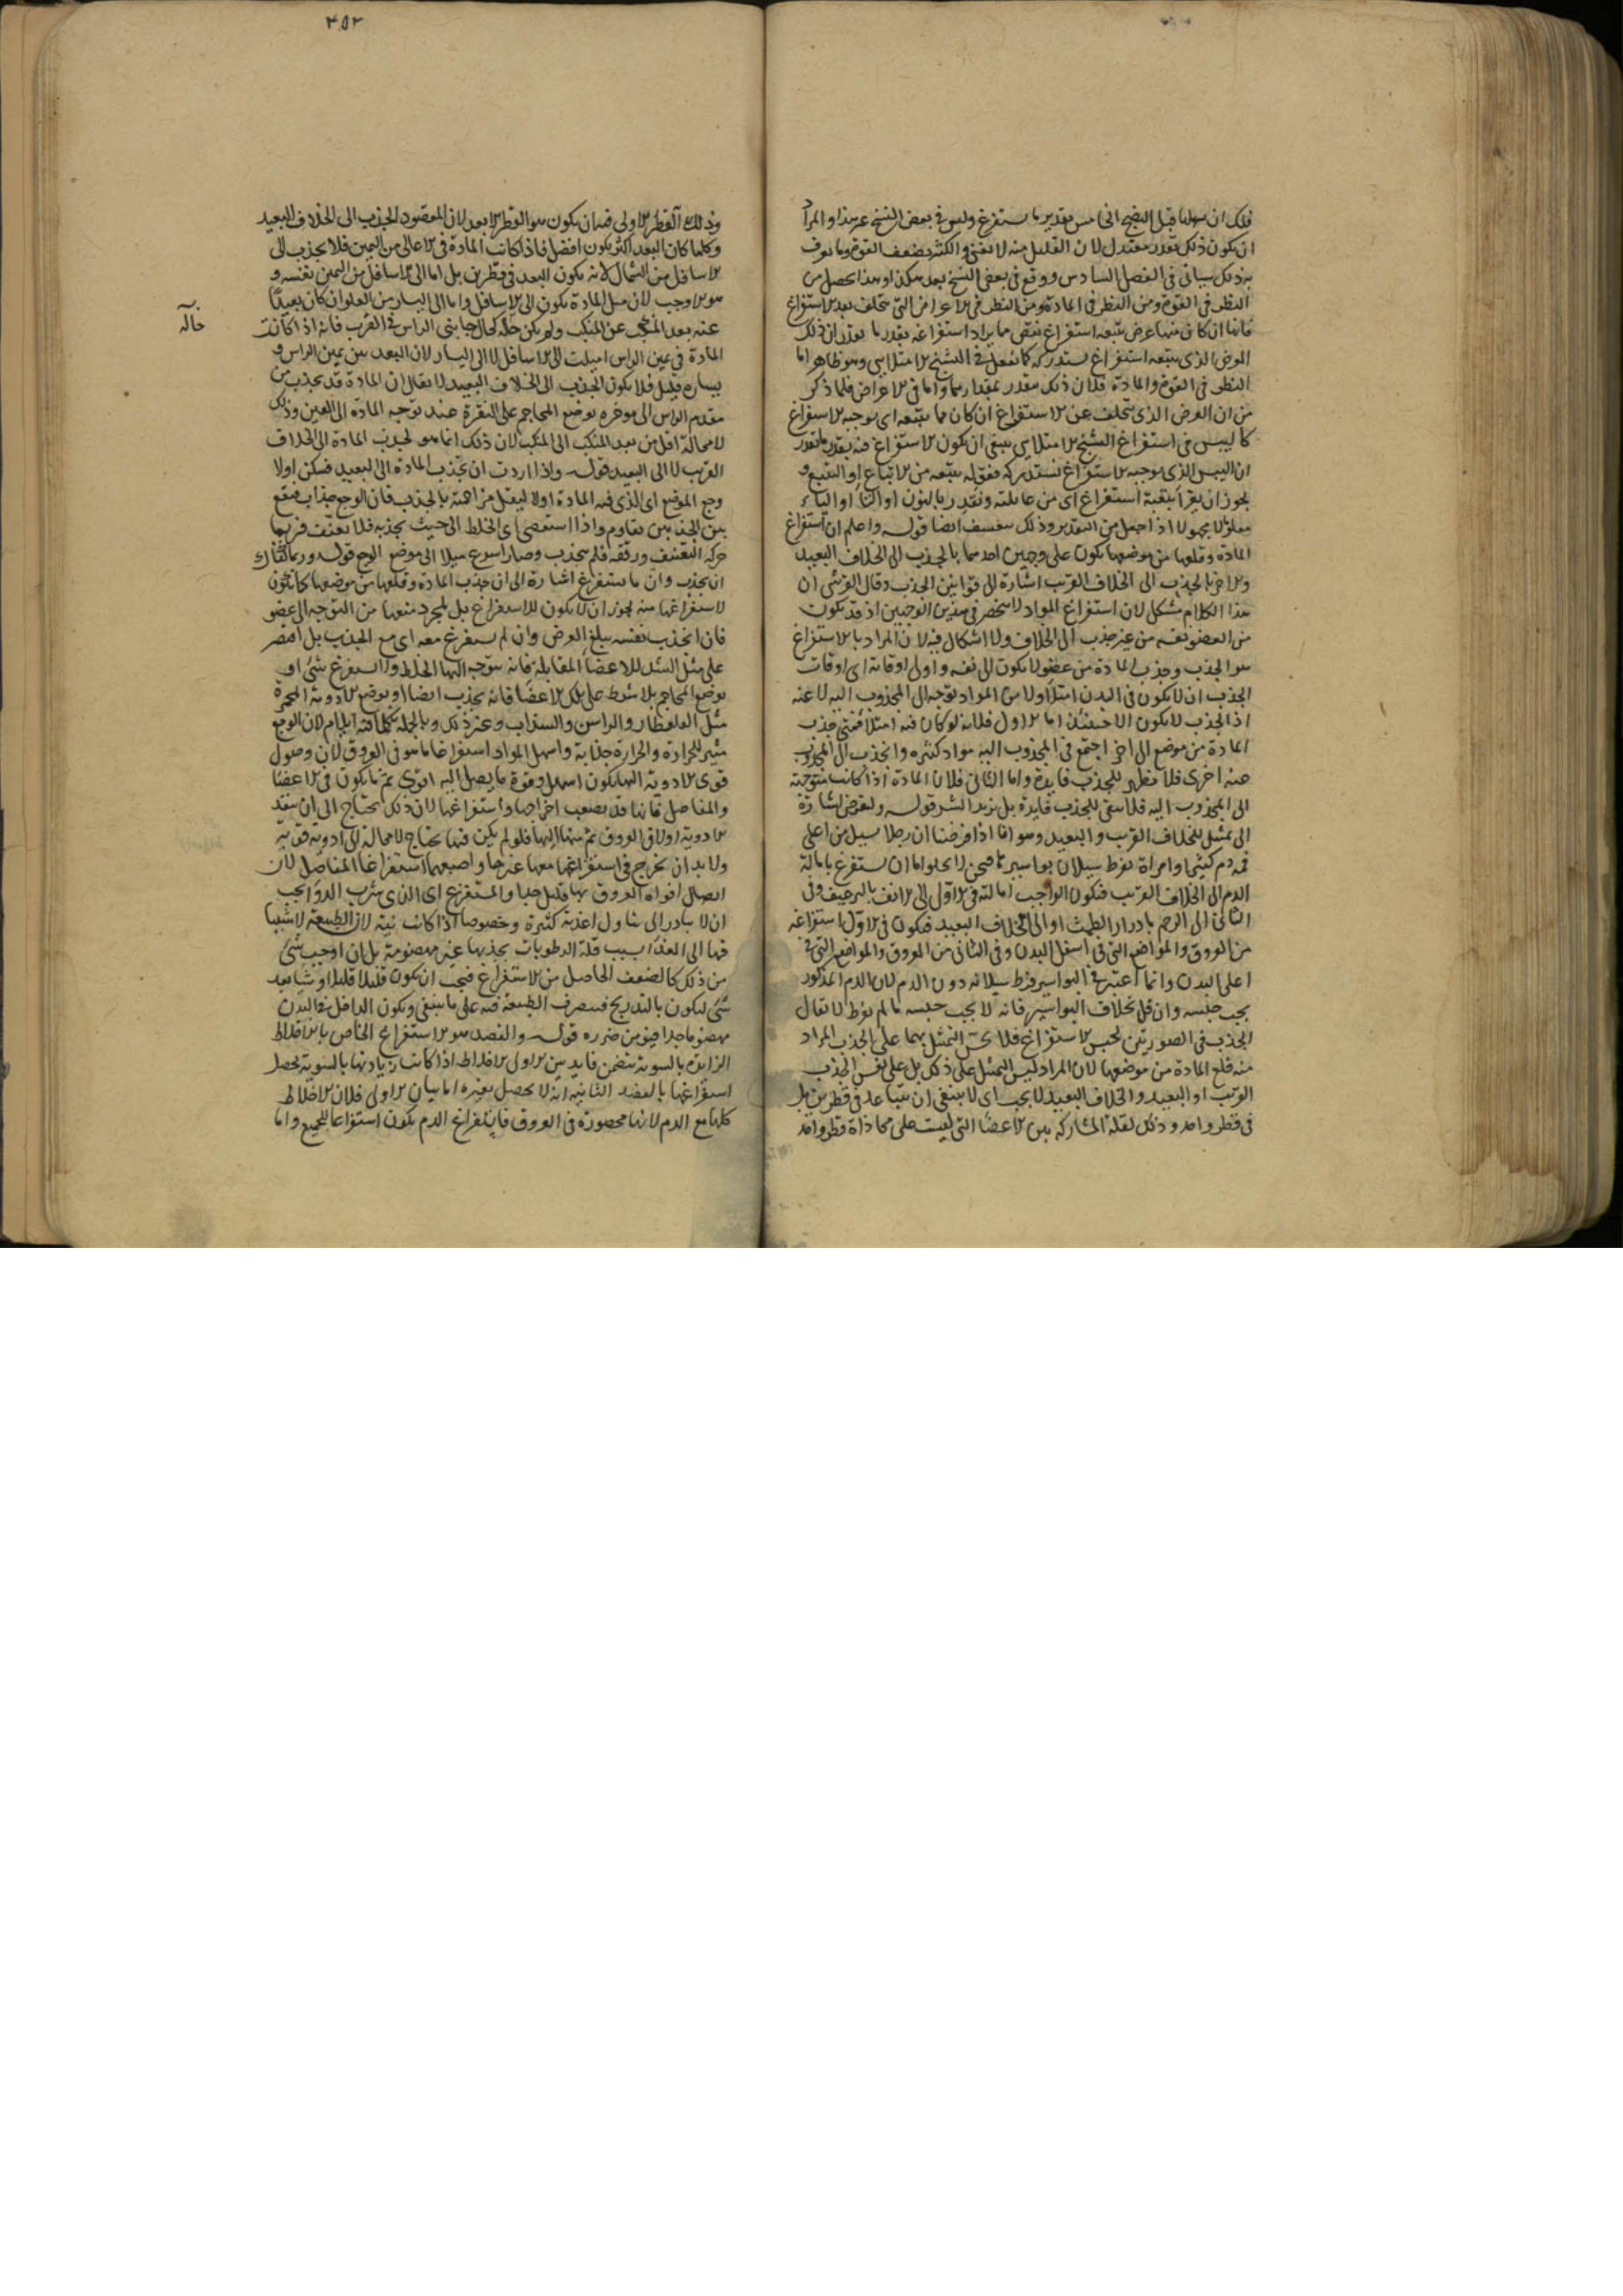 فلك ان يسهلها قبل النضج الخامس تقدير ما يستفرغ وليس في بعض النسخ عن هذا والمراد
ان يكون ذلك بقدر معتدل لان القليل منه لا يغني والكثير يضعف القوة وما يعرف
به ذلك سياتي في الفصل السادس ووقع في بعض النسخ بعد هكذا وهذا يحصل من
النظر في القوة ومن النظر في المادة ومن النظر في الاعراض التي تتخلف بعد الاستفراغ
فانها ان كان منها عرض يتبعه استفراغ نقص مما يراد استفراغه بقدر ما يقدر ان ذلك
العرض الذي يتبعه استفراغ يستدركه كما نفعل في التشنج الامتلايي وهو ظاهر اما
النظر في القوة والمادة فلان ذلك مقدر بمقدارهما واما في الاعراض فلما ذكر
من ان العرض الذي يتخلف عن الاستفراغ ان كان مما يتبعه اي يوجبه الاستفراغ
كاليبس في استفراغ التشنج الامتلايي ينبغي ان يكون الاستفراغ فيه بقدر ما يقدر
ان اليبس الذي يوجبه الاستفراغ يستدركه فقوله يتبعه من الاتباع او التتبع و
يجوز ان يقرأ بتقية استفراغ اي من غايلته ونقدر بالنون او التا او الياء
معلوما لا مجهولا اذا جعل من التقدير وذلك تعسف ايضا قوله واعلم ان استفراغ
المادة وقلعها من موضعها يكون على وجهين احدهما بالجذب الى الخلاف البعيد
والاخر بالجذب الى الخلاف القريب اشارة الى قوانين الجذب وقال القرشي ان
هذا الكلام مشكل لان استفراغ المواد لا ينحصر في هذين الوجهين اذ قد يكون
من العضو نفسه من غير جذب الى الخلاف ولا اشكال فيه لان المراد بالاستفراغ
هو الجذب وجذب المادة من عضو لا يكون الى نفسه واولى اوقاته اي اوقات
الجذب ان لا يكون في البدن امتلا ولا من المواد توجه الى المجذوب اليه لا عنه
اذ الجذب لا يكون الا حينئذ اما الاول فلانه لو كان فيه امتلا فمتى جذب
المادة من موضع الى اخر اجتمع في المجذوب اليه مواد كثيره وانجذب الى المجذوب
عنه اخرى فلا يظهر للجذب فايدة واما الثاني فلان المادة اذا كانت متوجهة
الى المجذوب اليه فلا يبقى للجذب فايدة بل يزيد الشر قوله ولنفرض اشارة
الى تمثيل للخلاف القريب والبعيد وهو انا اذا فرضنا ان رجلا يسيل من اعلى
فمه دم كثير وامراة بفرط سيلان بواسير ها فنحن لا يخلو اما ان نستفرغ بامالة
الدم الى الخلاف القريب فيكون الواجب امالته في الاول الى الانف بالترعيف وفي
الثاني الى الرحم بادرار الطمث او الى الخلاف البعيد فيكون في الاول استفراغه
من العروق والمواضع التي في اسفل البدن وفي الثاني من العروق والمواضع التي في
اعلى البدن وانما اعتبر في البواسير فرط سيلانه دون الدم لان الدم المذكور
يجب حبسه وان قل بخلاف البواسير فانه لا يجب حبسه ما لم يفرط لا يقال
الجذب في الصورتين لحبس الاستفراغ فلا يحسن التمثيل بهما على الجذب المراد
منه قلع المادة من موضعها لان المراد ليس التمثيل على ذلك بل على نفس الجذب
القريب او البعيد والخلاف البعيد لا يجب اي لا ينبغي ان يتباعد في قطرين بل
في قطر واحد وذلك لقلة المشاركة بين الاعضا التي ليست على محاذاة قطر واحد
٣٥٣
وذلك القطر الاولى فيه ان يكون هو القطر الابعد لان المقصود الجذب الى الخلاف البعيد
وكلما كان البعد اكثر يكون افضل فاذا كانت المادة في الاعالي من اليمين فلا يجذب الى
الاسافل من الشمال لانه يكون البعد في قطرين بل اما الى الاسافل من اليمين نفسه و
هو الاوجب لان ميل المادة يكون الى الاسافل واما الى اليسار من العلو ان كان بعيدا
عنه بعد المنكب عن المنكب ولم يكن حاله كحال جانبي الراس في القرب فانه اذا كانت
المادة في يمين الراس اميلت الى الاسافل لا الى اليسار لان البعد بين يمين الراس و
يساره قليل فلا يكون الجذب الى الخلاف البعيد لا يقال ان المادة قد يجذب من
مقدم الراس الى موخره بوضع المحاجم على النقرة عند توجه المادة الى العين وذلك
لا محالة اقل من بعد المنكب الى المنكب لان ذلك انما هو لجذب المادة الى الخلاف
القريب لا الى البعيد قوله واذا اردت ان تجذب المادة الى البعيد فسكن اولا
وجع الموضع اي الذي فيه المادة اولا ليقل مزاحمته بالجذب فان الوجع جذاب فيقع
بين الجذبين تقاوم واذا استعصى اي الخلط الى حيث يجذبه فلا تعنف فربما
حركه التعنيف ورققه فلم ينجذب وصار اسرع ميلا الى موضع الوجع قوله وربما كفاك
ان يجذب وان ما يستفرغ اشارة الى ان جذب المادة وقلعها من موضعها كما يكون
لاستفراغها منه يجوز ان لا يكون للاستفراغ بل لمجرد منعها من التوجه الى عضو
فان الجذب نفسه يبلغ الغرض وان لم يستفرغ معه اي مع الجذب بل اقتصر
على مثل الشد للاعضا المقابلة فانه يتوجه اليها الخلط ولا يستفرغ شي او
بوضع المحاجم بلا شرط على تلك الاعضا فانه يجذب ايضا او بوضع الادوية المحمرة
مثل العلعطار والراسن والسذاب وغير ذلك وبالجملة بكل ما فيه ايلام لان الوجع
مثير للحرارة والحرارة جذابة واسهل المواد استفراغا ما هو في العروق لان وصول
قوى الادوية اليها يكون اسهل وقوة ما يصل اليه اقوى ثم ما يكون في الاعضا
والمفاصل فانها قد يصعب اخراجها واستفراغها لان ذلك يحتاج الى ان ينفذ
الادوية اولا في العروق ثم منها اليها فلو لم يكن فيها يحتاج لا محالة الى ادوية قوية
ولا بد ان يخرج في استفراغها معها غيرها واصعبها استفراغا المفاصل لان
اتصال افواه العروق بها قليل جدا والمستفرغ اي الذي شرب الدوا يجب
ان لا يبادر الى تناول اغذية كثيرة وخصوصا اذا كانت نية لان الطبيعة لاشتياقها
فيها الى الغذا بسبب قلة الرطوبات يجذبها غير مهضومة بل ان اوجب شي
من ذلك كالضعف الحاصل من الاستفراغ فيجب ان يكون قليلا قليلا وشيا بعد
شي ليكون بالتدريج فيتصرف الطبيعة فيه على ما ينبغي ويكون الداخل في البدن
مهضوما جدا فيؤمن ضرره قوله والفصد هو الاستفراغ الخاص بالاخلاط
الزايدة بالسوية يتضمن فايدتين الاولى الاخلاط اذا كانت زيادتها بالسوية يحصل
استفراغها بالفصد الثانية انه لا يحصل بغيره اما بيان الاولى فلان الاخلاط
كلها مع الدم لانها محصورة في العروق فاستفراغ الدم يكون استفراغا للجميع واما
حاله